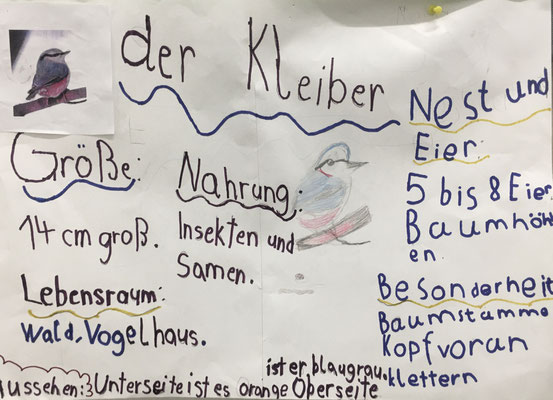 der Kleiber
Größe:
14 cm groß.
Lebensraum:
Wald, Vogelhaus.
Nahrung:
Insekten und
Samen.
Nest und
Eier:
5 bis 8 Eier
Baumhöhl
en.
Besonderheit
Baumstämme
Kopfvoran
klettern
ist er blaugrau.
Aussehen: Unterseite ist es orange Oberseite